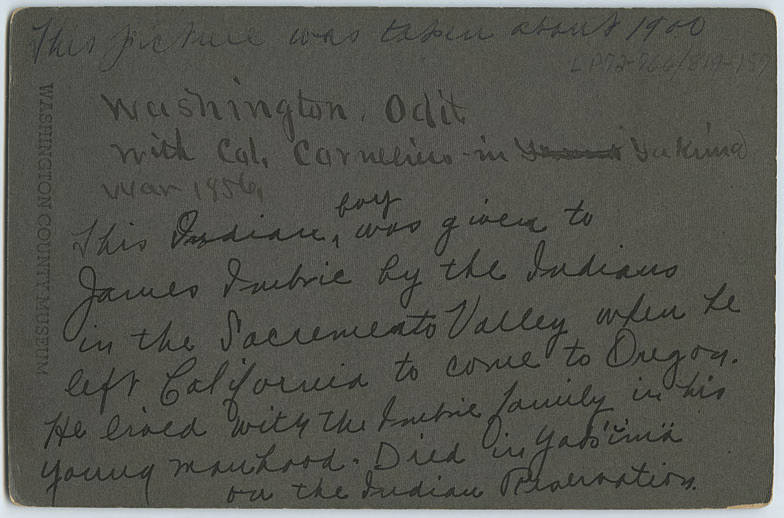 This picture was taken about 1900
LP72-766/819-157
Washington. Odit
with Col. Cornelius in Yakima
War 1856,
This Indian, boy was given to
James Imbrie by the Indians
in the Sacremento Valley when he
left California to come to Oregon.
He lived with the Imbrie family in his
young manhood. Died in
on the Indian Reservation.
WASHINGTON COUNTY MUSEUM